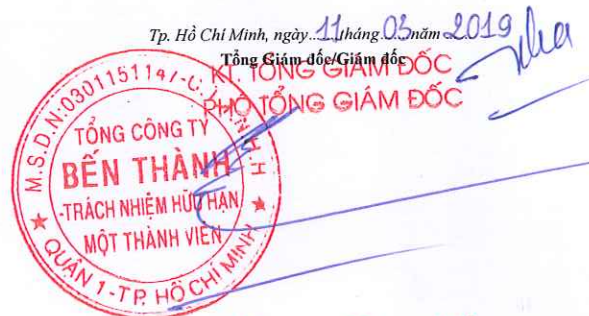 Tp. Hồ Chí Minh, ngày 11 tháng 03 năm 2019
Tổng Giám đốc/Giám đốc
KT. TỔNG GIÁM ĐỐC
PHÓ TỔNG GIÁM ĐỐC
M.S.D.N:0301151147-C.T.T.N.H.H
TỔNG CÔNG TY
BẾN THÀNH
-TRÁCH NHIỆM HỮU HẠN
MỘT THÀNH VIÊN
QUẬN 1-TP. HỒ CHÍ MINH